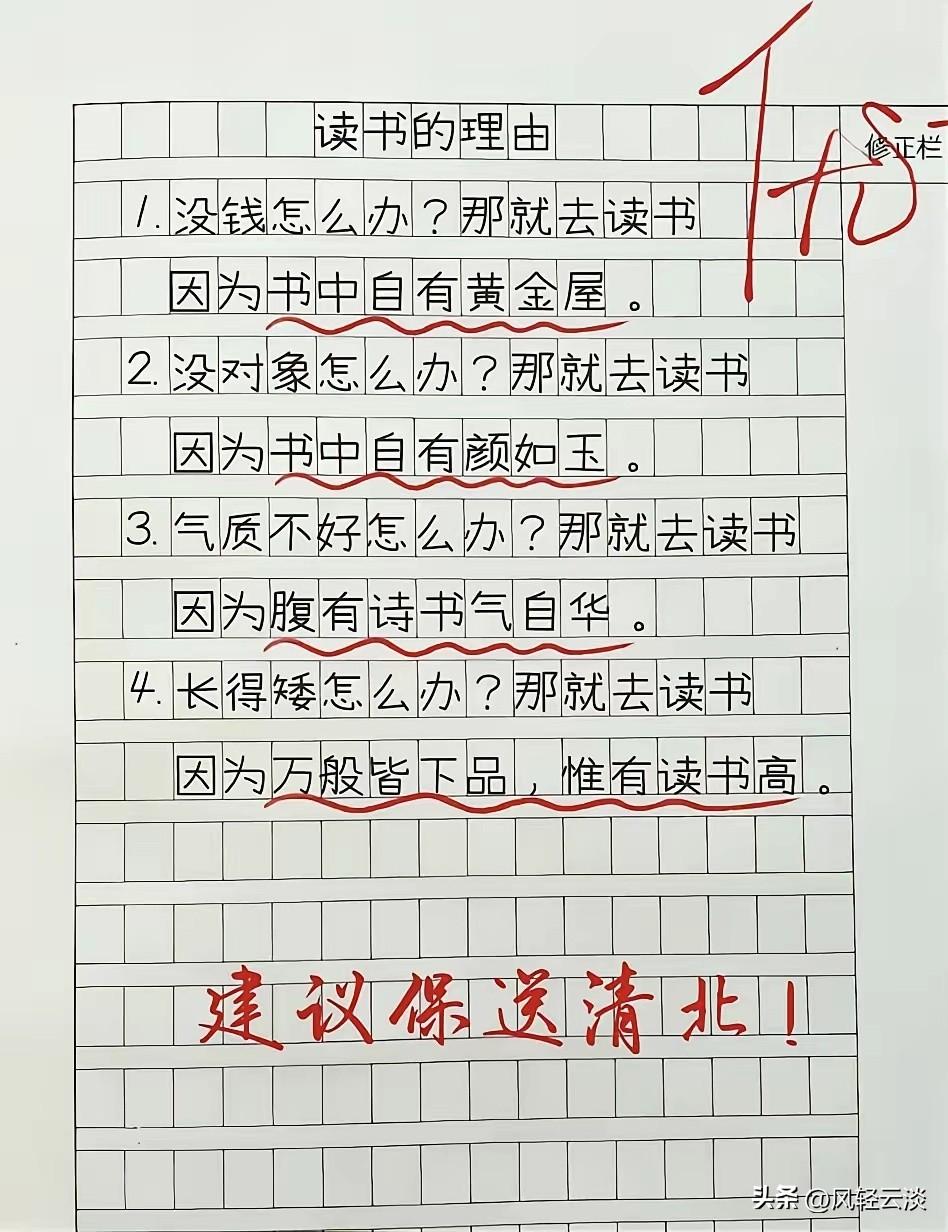 读书的理由
修正栏
优
1.没钱怎么办？那就去读书
因为书中自有黄金屋。
2.没对象怎么办？那就去读书
因为书中自有颜如玉。
3.气质不好怎么办？那就去读书
因为腹有诗书气自华。
4.长得矮怎么办？那就去读书
因为万般皆下品，惟有读书高。
建议保送清北！
头条 @风轻云淡